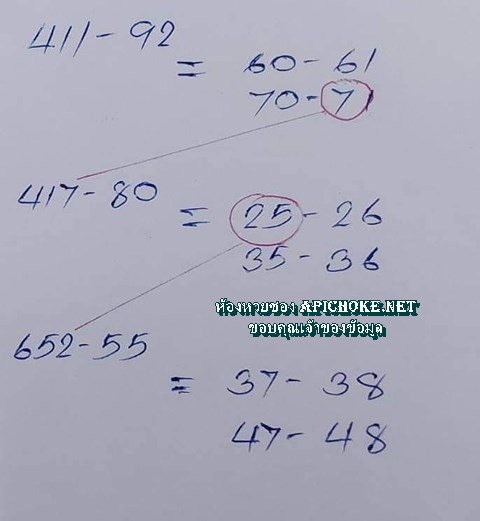 411-92
= 60-61
70-7
417-80
= 25-26
35-36
ห้องหวยซอง APICHOKE.NET
ขอบคุณเจ้าของข้อมูล
652-55
= 37-38
47-48